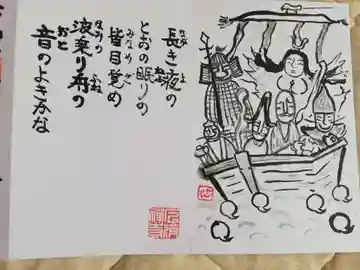 なが よ
長き夜の
ねむ
とおの眠りの
みなめざ
皆目覚め
なみの ふね
波乗り舟の
おと
音のよきかな